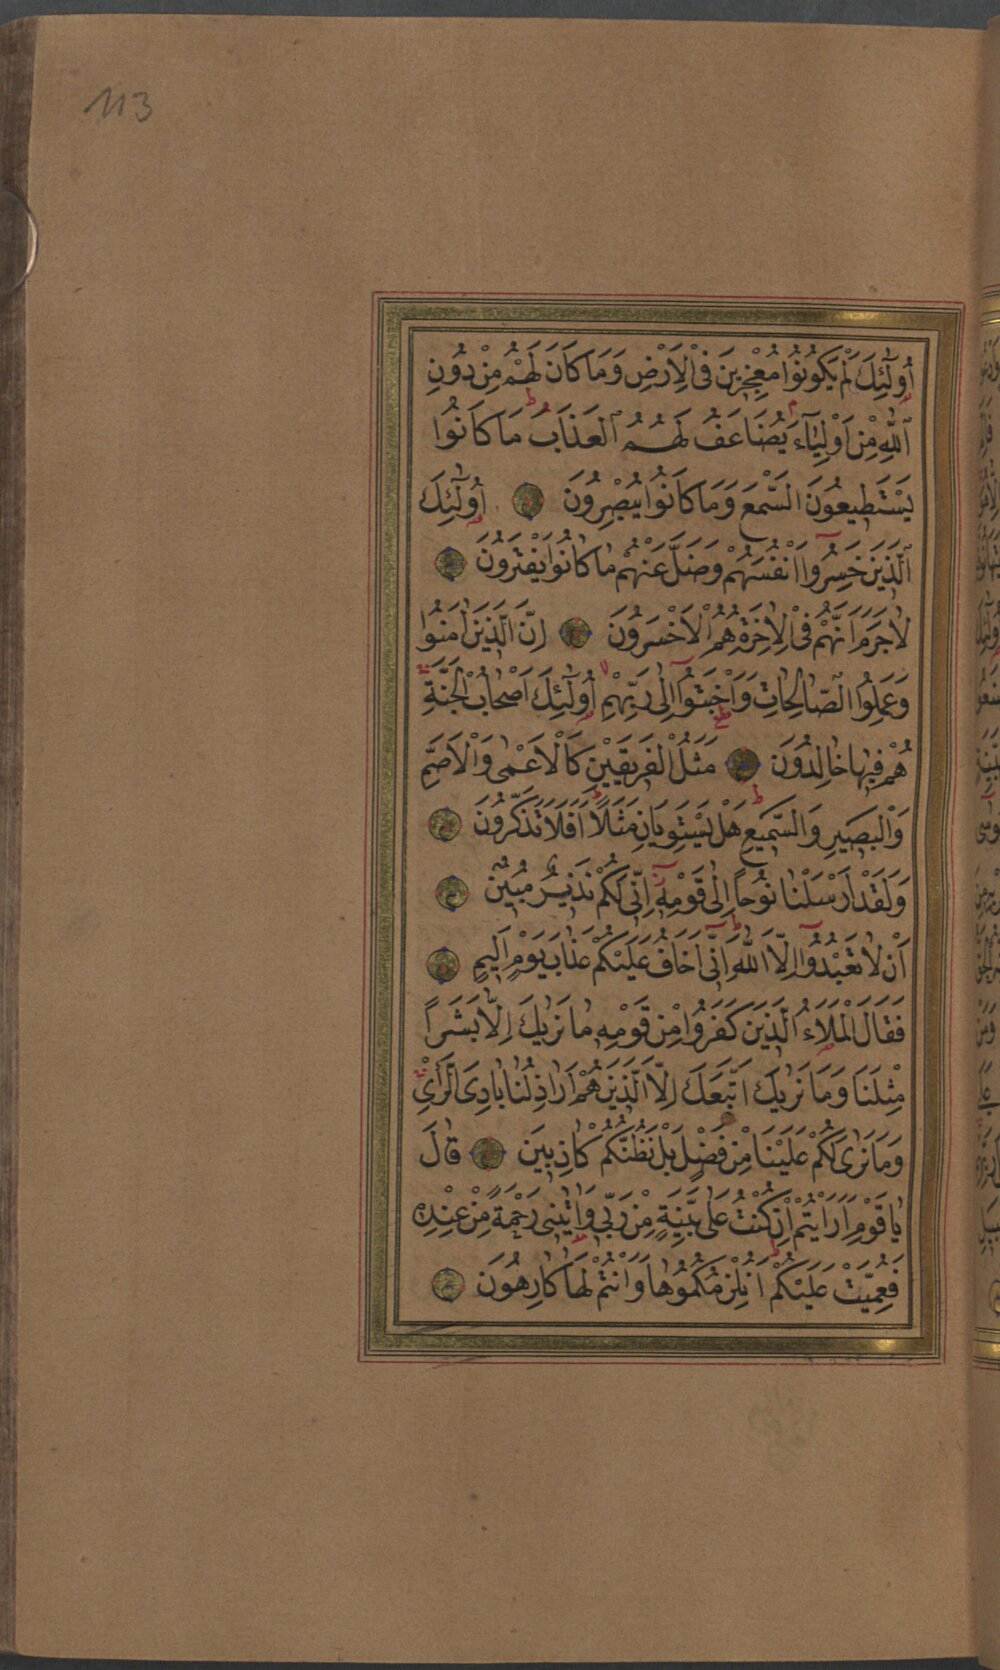 113
اُولٰٓئِكَ لَمْ يَكُونُوا مُعْجِزِينَ فِى الْاَرْضِ وَمَا كَانَ لَهُمْ مِنْ دُونِ
اللّٰهِ مِنْ اَوْلِيَٓاءَ يُضَاعَفُ لَهُمُ الْعَذَابُ مَا كَانُوا
يَسْتَطِيعُونَ السَّمْعَ وَمَا كَانُوا يُبْصِرُونَ اُولٰٓئِكَ
الَّذِينَ خَسِرُٓوا اَنْفُسَهُمْ وَضَلَّ عَنْهُمْ مَا كَانُوا يَفْتَرُونَ
لَا جَرَمَ اَنَّهُمْ فِى الْاٰخِرَةِ هُمُ الْاَخْسَرُونَ اِنَّ الَّذِينَ اٰمَنُوا
وَعَمِلُوا الصَّالِحَاتِ وَاَخْبَتُٓوا اِلٰى رَبِّهِمْ اُولٰٓئِكَ اَصْحَابُ الْجَنَّةِ
هُمْ فِيهَا خَالِدُونَ مَثَلُ الْفَرِيقَيْنِ كَالْاَعْمٰى وَالْاَصَمِّ
وَالْبَصِيرِ وَالسَّمِيعِ هَلْ يَسْتَوِيَانِ مَثَلًا اَفَلَا تَذَكَّرُونَ
وَلَقَدْ اَرْسَلْنَا نُوحًا اِلٰى قَوْمِهٖٓ اِنِّى لَكُمْ نَذِيرٌ مُبِينٌ
اَنْ لَا تَعْبُدُٓوا اِلَّا اللّٰهَ اِنِّٓى اَخَافُ عَلَيْكُمْ عَذَابَ يَوْمٍ اَلِيمٍ
فَقَالَ الْمَلَاُ الَّذِينَ كَفَرُوا مِنْ قَوْمِهٖ مَا نَرٰيكَ اِلَّا بَشَرًا
مِثْلَنَا وَمَا نَرٰيكَ اتَّبَعَكَ اِلَّا الَّذِينَ هُمْ اَرَاذِلُنَا بَادِىَ الرَّأْىِ
وَمَا نَرٰى لَكُمْ عَلَيْنَا مِنْ فَضْلٍ بَلْ نَظُنُّكُمْ كَاذِبِينَ قَالَ
يَا قَوْمِ اَرَاَيْتُمْ اِنْ كُنْتُ عَلٰى بَيِّنَةٍ مِنْ رَبِّى وَاٰتٰينِى رَحْمَةً مِنْ عِنْدِهٖ
فَعُمِّيَتْ عَلَيْكُمْ اَنُلْزِمُكُمُوهَا وَاَنْتُمْ لَهَا كَارِهُونَ